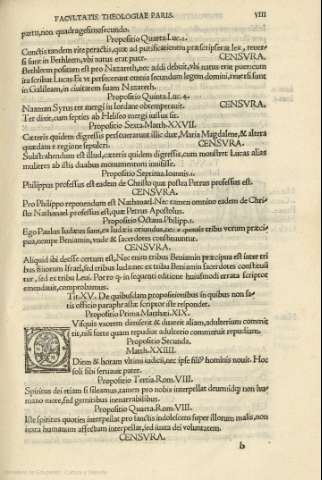 FACULTATIS THEOLOGIAE PARIS. VIII
partu, non quadragesimosecundo.
Propositio Quarta Luc. 2.
Cunctis tandem rite peractis, quæ ad purificationem præscripserat lex, reuer-
si sunt in Bethleem, vbi natus erat puer. CENSVRA.
Bethleem positum est pro Nazareth, nec addi debuit, vbi natus erat puer: cum
ita scribat Lucas. Et vt perfecerunt omnia secundum legem domini, reuersi sunt
in Galilæam, in ciuitatem suam Nazareth.
Propositio Quinta Luc. 4.
Naaman Syrus ter mergi in Iordane obtemperauit. CENSVRA.
Ter dixit, cum septies ab Heliseo mergi iussus sit.
Propositio Sexta Matth. XXVII.
Cæteris quidem digressis perseuerarunt illic duæ, Maria Magdalene, & altera
quædam e regione sepulcri. CENSVRA.
Substrahendum est illud, cæteris quidem digressis, cum monstret Lucas alias
mulieres ab istis duabus monumentum inuisisse.
Propositio Septima Ioannis. 1.
Philippus professus est eadem de Christo quæ postea Petrus professus est.
CENSVRA.
Pro Philippo reponendum est Nathanael. Nec tamen omnino eadem de Chri-
sto Nathanael professus est, quæ Petrus Apostolus.
Propositio Octaua Philipp. 3.
Ego Paulus Iudæus sum, ex Iudæis oriundus, nec e quouis tribu verum præci-
pua, nempe Beniamin, vnde & sacerdotes constituuntur.
CENSVRA.
Aliquid ibi deesse certum est, Nec enim tribus Beniamin præcipua est inter tri
bus filiorum Israel, sed tribus Iudanec ex tribu Beniamin sacerdotes constituti
tur, sed ex tribu Leui. Porro q in sequenti editione huiusmodi errata scriptor
emendauit, comprobamus.
Tit. XV. De quibusdam propositionibus in quibus non sa-
tis officio paraphrastæ scriptor iste respondet.
Propositio Prima Matthæi. XIX.
Visquis vxorem dimiserit & duxerit aliam, adulterium commit
tit, nisi forte quam repudiat adulterio commeruit repudium.
Propositio Secunda.
Matth. XXIIII.
Diem & horam vltimi iudicii, nec ipse filius hominis nouit. Hoc
soli sibi seruauit pater.
Propositio Tertia Rom. VIII.
Spiritus dei etiam si sileamus, tamen pro nobis interpellat deum idque non hu-
mano more, sed gemitibus inenarrabilibus.
Propositio Quarta Rom. VIII.
Iste spiritus quoties interpellat pro sanctis indolescens super illorum malis, non
iuxta humanum affectum interpellat, sed iuxta dei voluntatem.
CENSVRA.
b